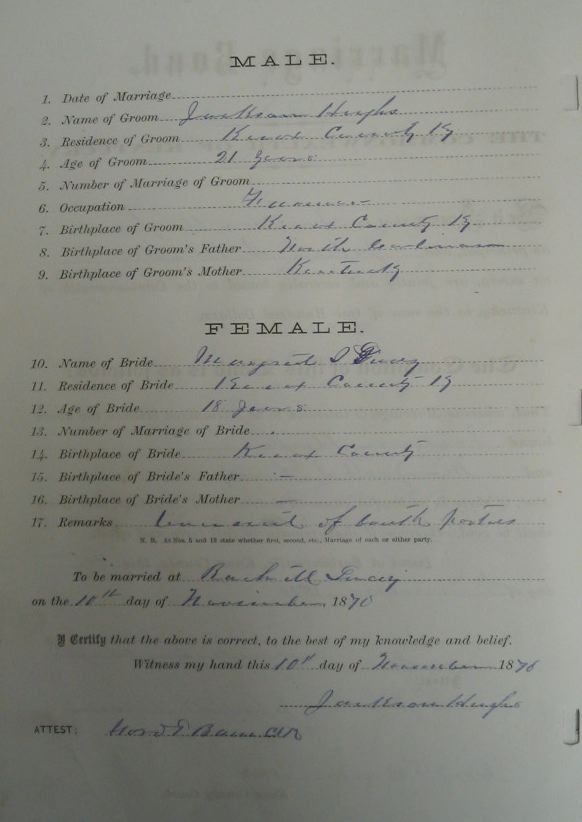 MALE.
1. Date of Marriage
2. Name of Groom Jackson Hughs
3. Residence of Groom Knox County Ky
4. Age of Groom 21 Years
5. Number of Marriage of Groom
6. Occupation Farmer
7. Birthplace of Groom Knox County Ky
8. Birthplace of Groom's Father North
9. Birthplace of Groom's Mother Kentucky
FEMALE.
10. Name of Bride
11. Residence of Bride Knox County Ky
12. Age of Bride 18 Years
13. Number of Marriage of Bride
14. Birthplace of Bride Knox County
15. Birthplace of Bride's Father —
16. Birthplace of Bride's Mother —
17. Remarks of
N. B. At Nos. 5 and 13 state whether first, second, etc., Marriage of each or either party.
To be married at
on the 10th day of November 1870
I Certify that the above is correct, to the best of my knowledge and belief.
Witness my hand this 10th day of November 1870
Jackson Hughs
ATTEST: